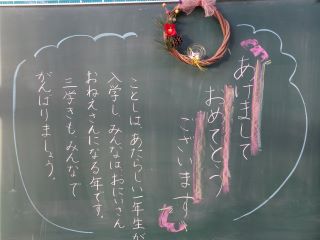 あけまして
おめでとう
ございます
ことしは、あたらしい一年生が
入学し、みんなはおにいさん
おねえさんになる年です。
三学きも、みんなで
がんばりましょう。